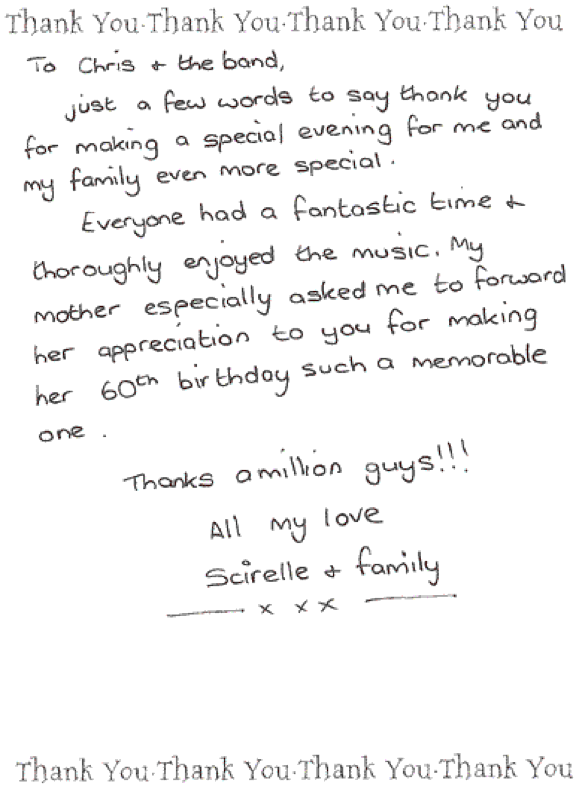 Thank You·Thank You·Thank You·Thank You
To Chris + the band,
just a few words to say thank you
for making a special evening for me and
my family even more special.
Everyone had a fantastic time +
thoroughly enjoyed the music. My
mother especially asked me to forward
her appreciation to you for making
her 60th birthday such a memorable
one.
Thanks a million guys!!!
All my love
Scirelle + family
x x x
Thank You·Thank You·Thank You·Thank You